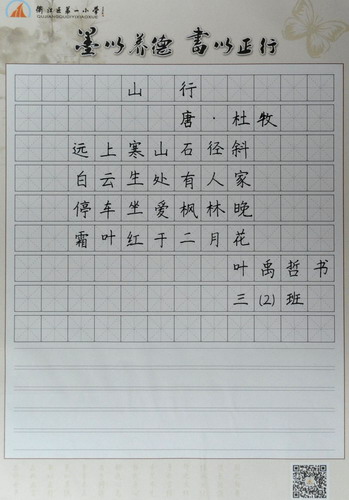 衢江区第一小学
墨以养德 書以正行
山行
唐·杜牧
远上寒山石径斜
白云生处有人家
停车坐爱枫林晚
霜叶红于二月花
叶禹哲书
三(2)班